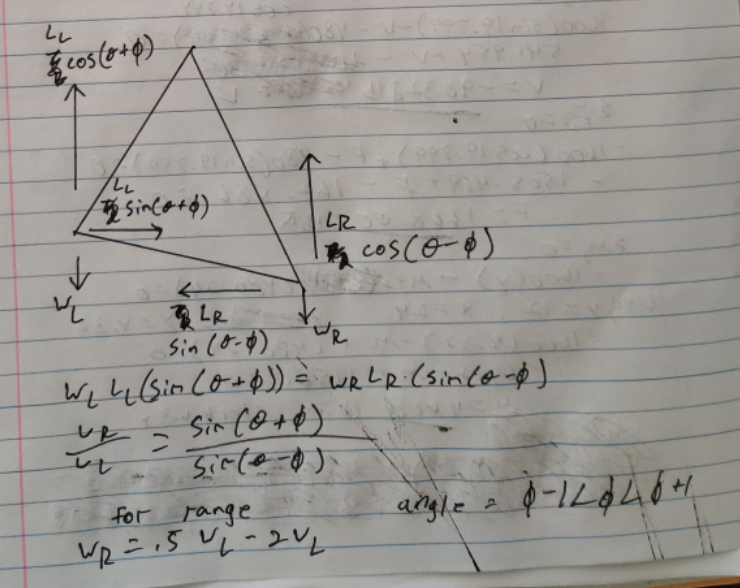 L_L
cos(θ+ϕ)
L_L
sin(θ+ϕ)
L_R
cos(θ-ϕ)
W_L
L_R
sin(θ-ϕ)
W_R
W_L L_L(sin(θ+ϕ)) = W_R L_R·(sin(θ-ϕ)
W_R/W_L = sin(θ+ϕ)/sin(θ-ϕ)
for range
angle = ϕ-1∠ϕ∠ϕ+1
W_R = .5 W_L - 2W_L